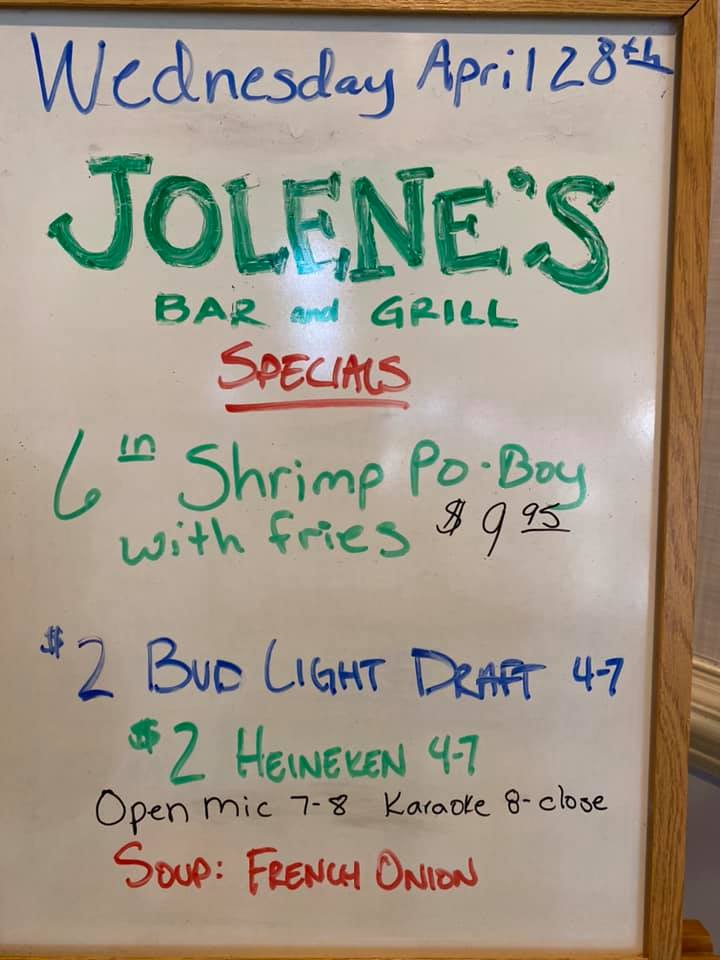 Wednesday April 28th
JOLENE'S
BAR and GRILL
SPECIALS
6 in Shrimp Po-Boy
with fries $9.95
$2 BUD LIGHT DRAFT 4-7
$2 HEINEKEN 4-7
Open mic 7-8 Karaoke 8-close
SOUP: FRENCH ONION